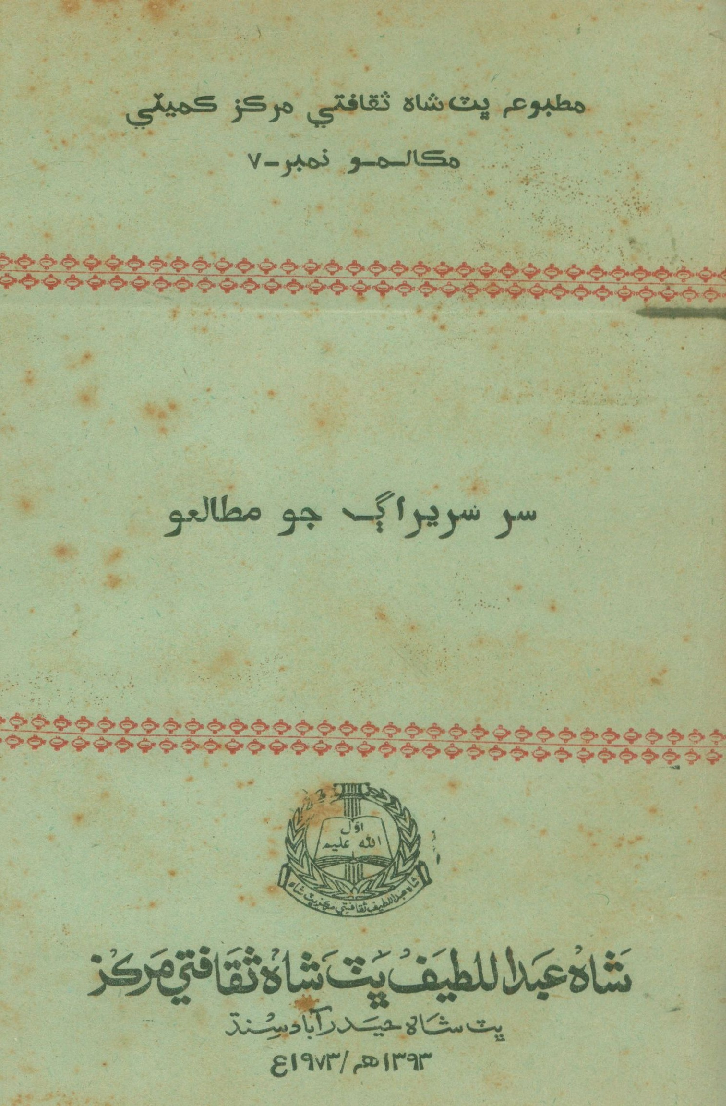 مطبوعه ڀٽ شاه ثقافتي مرڪز ڪميٽي
مڪالمو نمبر-٧
سر سريراڳ جو مطالعو
اوّل
الله عليم
شاه عبداللطيف ثقافتي مرڪز ڀٽ شاه
شَاهْ عَبدُاللطيفْ ڀٽ شَاهْ ثقَافتي مَرڪزْ
ڀٽ شاھ حيدرآباد سِنڌ
١٣٩٣ھ/١٩٧٣ع